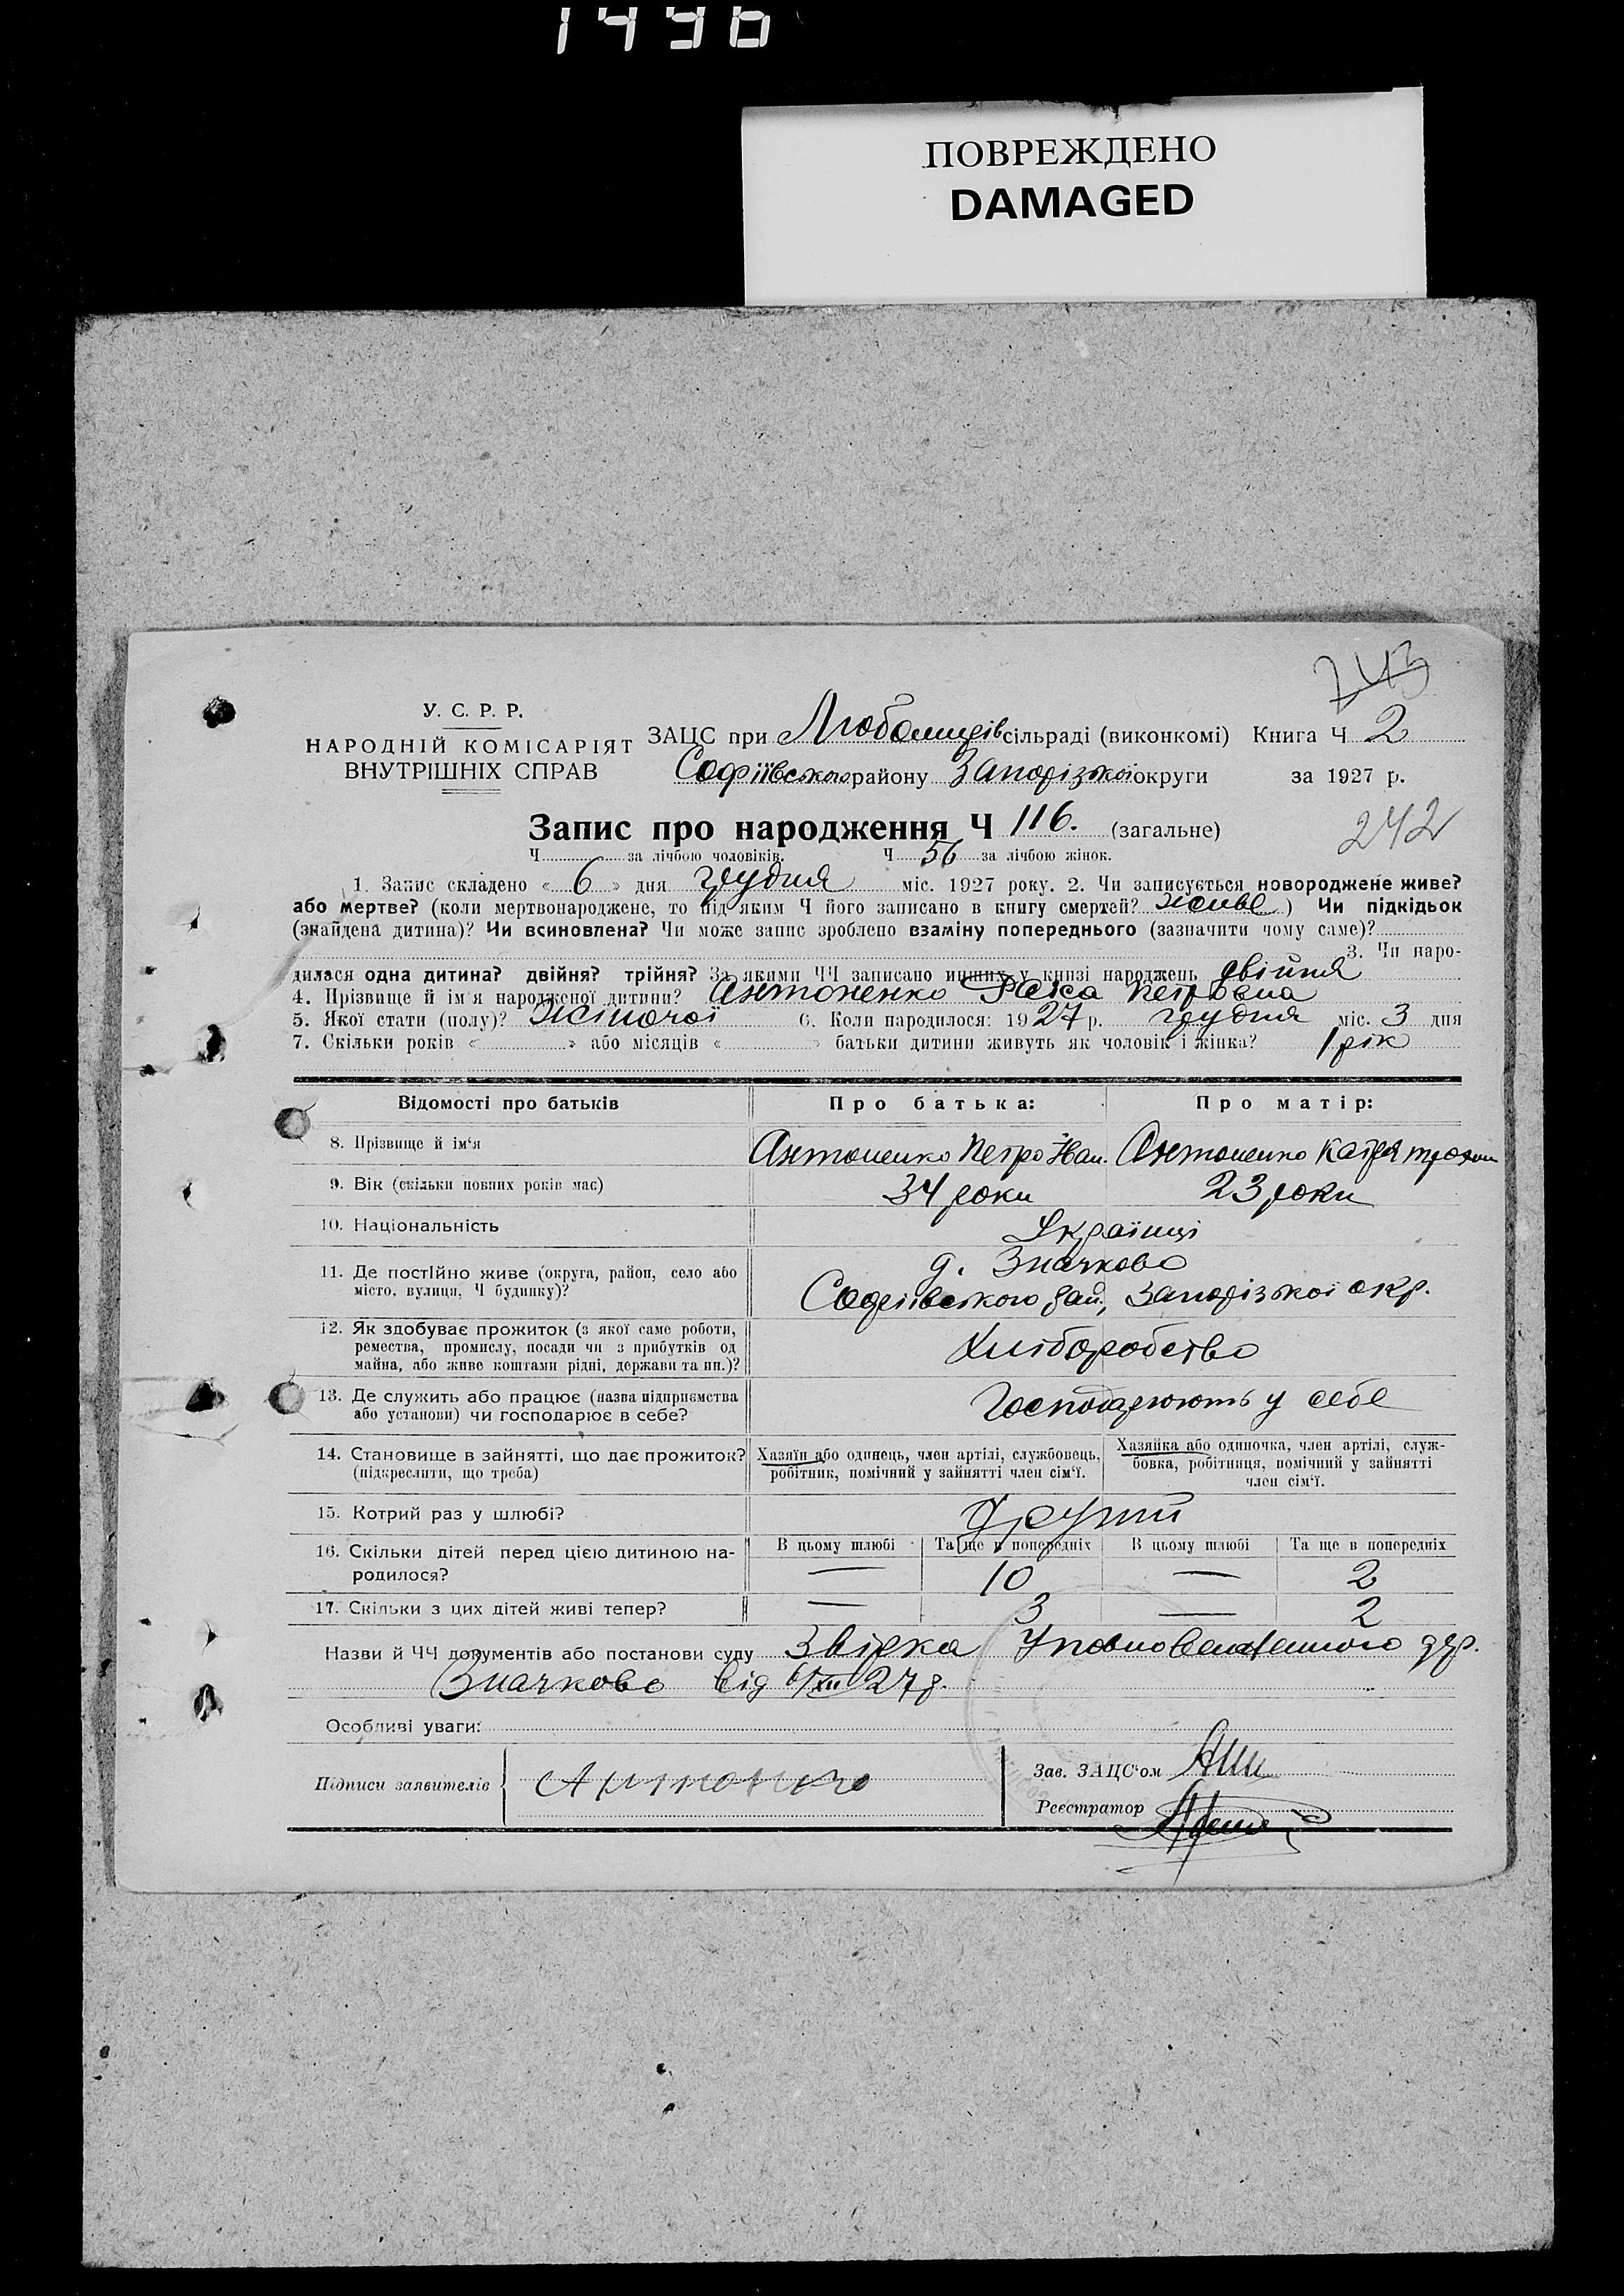 1496
ПОВРЕЖДЕНО
DAMAGED
743
У. С. Р. Р.
НАРОДНІЙ КОМІСАРІЯТ
ВНУТРІШНІХ СПРАВ
ЗАЦС при Любомирів сільраді (виконкомі) Книга Ч 2
Софіївського району Запорізької округи за 1927 р.
Запис про народження Ч 116. (загальне)
242
Ч за лічбою чоловіків. Ч 56 за лічбою жінок.
1. Запис складено « 6 » дня грудня міс. 1927 року. 2. Чи записується новороджене живе?
або мертве? (коли мертвонароджене, то під яким Ч його записано в книгу смертей? живе ) Чи підкідьок
(знайдена дитина)? Чи всиновлена? Чи може запис зроблено взаміну попереднього (зазначити чому саме)?
3. Чи наро-
дилася одна дитина? двійня? трійня? За якими ЧЧ записано инших у книзі народжень двійня
4. Прізвище й ім'я народженої дитини? Антоненко Раїса Петровна
5. Якої стати (полу)? Жіночої 6. Коли народилося: 1927 р. грудня міс. 3 дня
7. Скільки років « » або місяців « » батьки дитини живуть як чоловік і жінка? 1 рік
Відомості про батьків Про батька: Про матір:
8. Прізвище й ім'я Антоненко Петро Иван. Антоненко Катря
9. Вік (скільки повних років має) 34 роки 23 роки
10. Національність Українці
11. Де постійно живе (округа, район, село або
місто, вулиця, Ч будинку)?
д. Значково
Софіївського рай., Запорізької окр.
12. Як здобуває прожиток (з якої саме роботи,
ремества, промислу, посади чи з прибутків од
майна, або живе коштами рідні, держави та ин.)?
Хліборобство
13. Де служить або працює (назва підприємства
або установи) чи господарює в себе?
Господарюють у себе
14. Становище в зайнятті, що дає прожиток?
(підкреслити, що треба)
Хазяїн або одинець, член артілі, службовець,
робітник, помічний у зайнятті член сім'ї.
Хазяйка або одиночка, член артілі, служ-
бовка, робітниця, помічний у зайнятті
член сім'ї.
15. Котрий раз у шлюбі? Другий
16. Скільки дітей перед цією дитиною на-
родилося?
В цьому шлюбі Та ще в попередніх В цьому шлюбі Та ще в попередніх
— 10 — 2
17. Скільки з цих дітей живі тепер? — 3 — 2
Назви й ЧЧ документів або постанови суду Звірка Уповноваженного
Значково від 6/XII 27 р.
Особливі уваги:
Підписи заявителів Антоненко
Зав. ЗАЦС'ом
Реєстратор